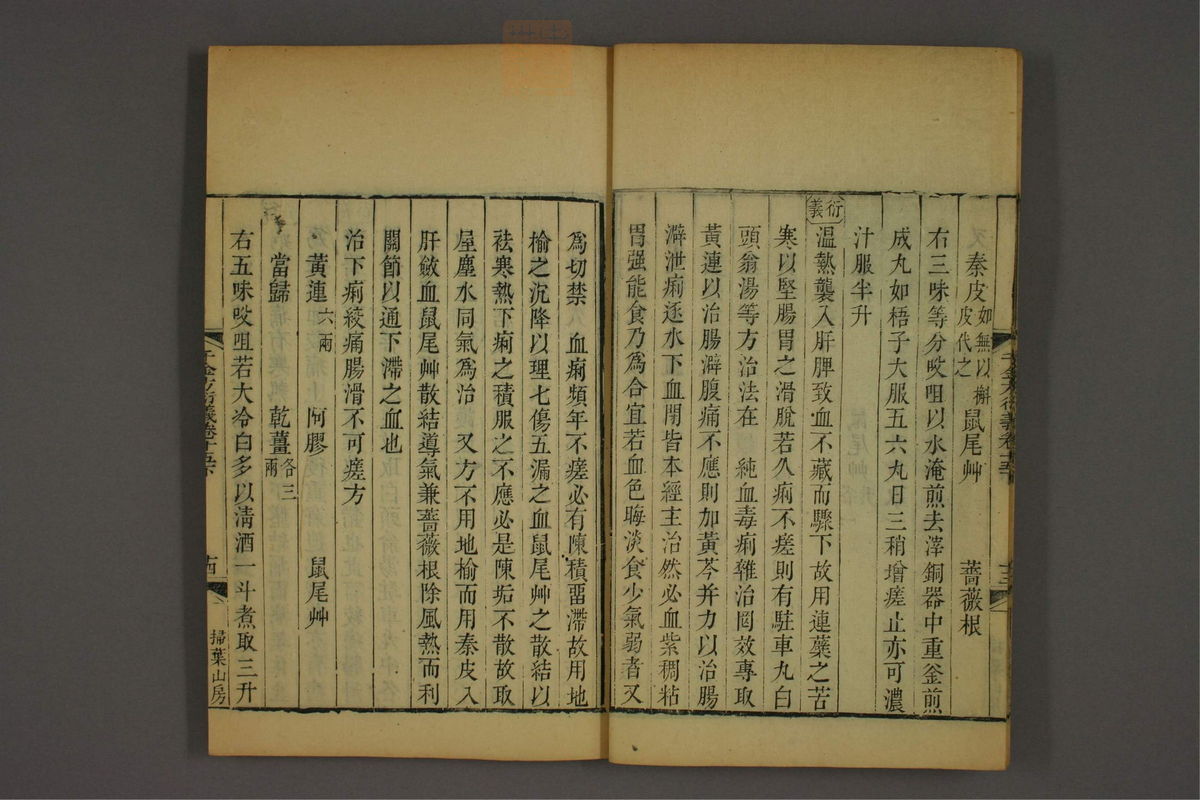 秦皮如無以槲皮代之　鼠尾艸　薔薇根
右三味等分㕮咀以水淹煎去滓銅器中重釜煎
成丸如梧子大服五六丸日三稍增瘥止亦可濃
汁服半升
衍義
溫熱襲入肝脾致血不藏而驟下故用連蘗之苦
寒以堅腸胃之滑脫若久痢不瘥則有駐車丸白
頭翁湯等方治法在　純血毒痢雜治罔效專取
黃連以治腸澼腹痛不應則加黃芩并力以治腸
澼泄痢逐水下血閉皆本經主治然必血紫稠粘
胃强能食乃爲合宜若血色晦淡食少氣弱者又
爲切禁　血痢頻年不瘥必有陳積畱滯故用地
榆之沉降以理七傷五漏之血鼠尾艸之散結以
袪寒熱下痢之積服之不應必是陳垢不散故取
屋塵水同氣爲治　又方不用地榆而用秦皮入
肝斂血鼠尾艸散結導氣兼薔薇根除風熱而利
關節以通下滯之血也
治下痢絞痛腸滑不可瘥方
黃連六兩　阿膠　鼠尾艸
當歸　乾薑各三兩
右五味㕮咀若大冷白多以淸酒一斗煮取三升
千金方衍義卷十五下
十四
掃葉山房